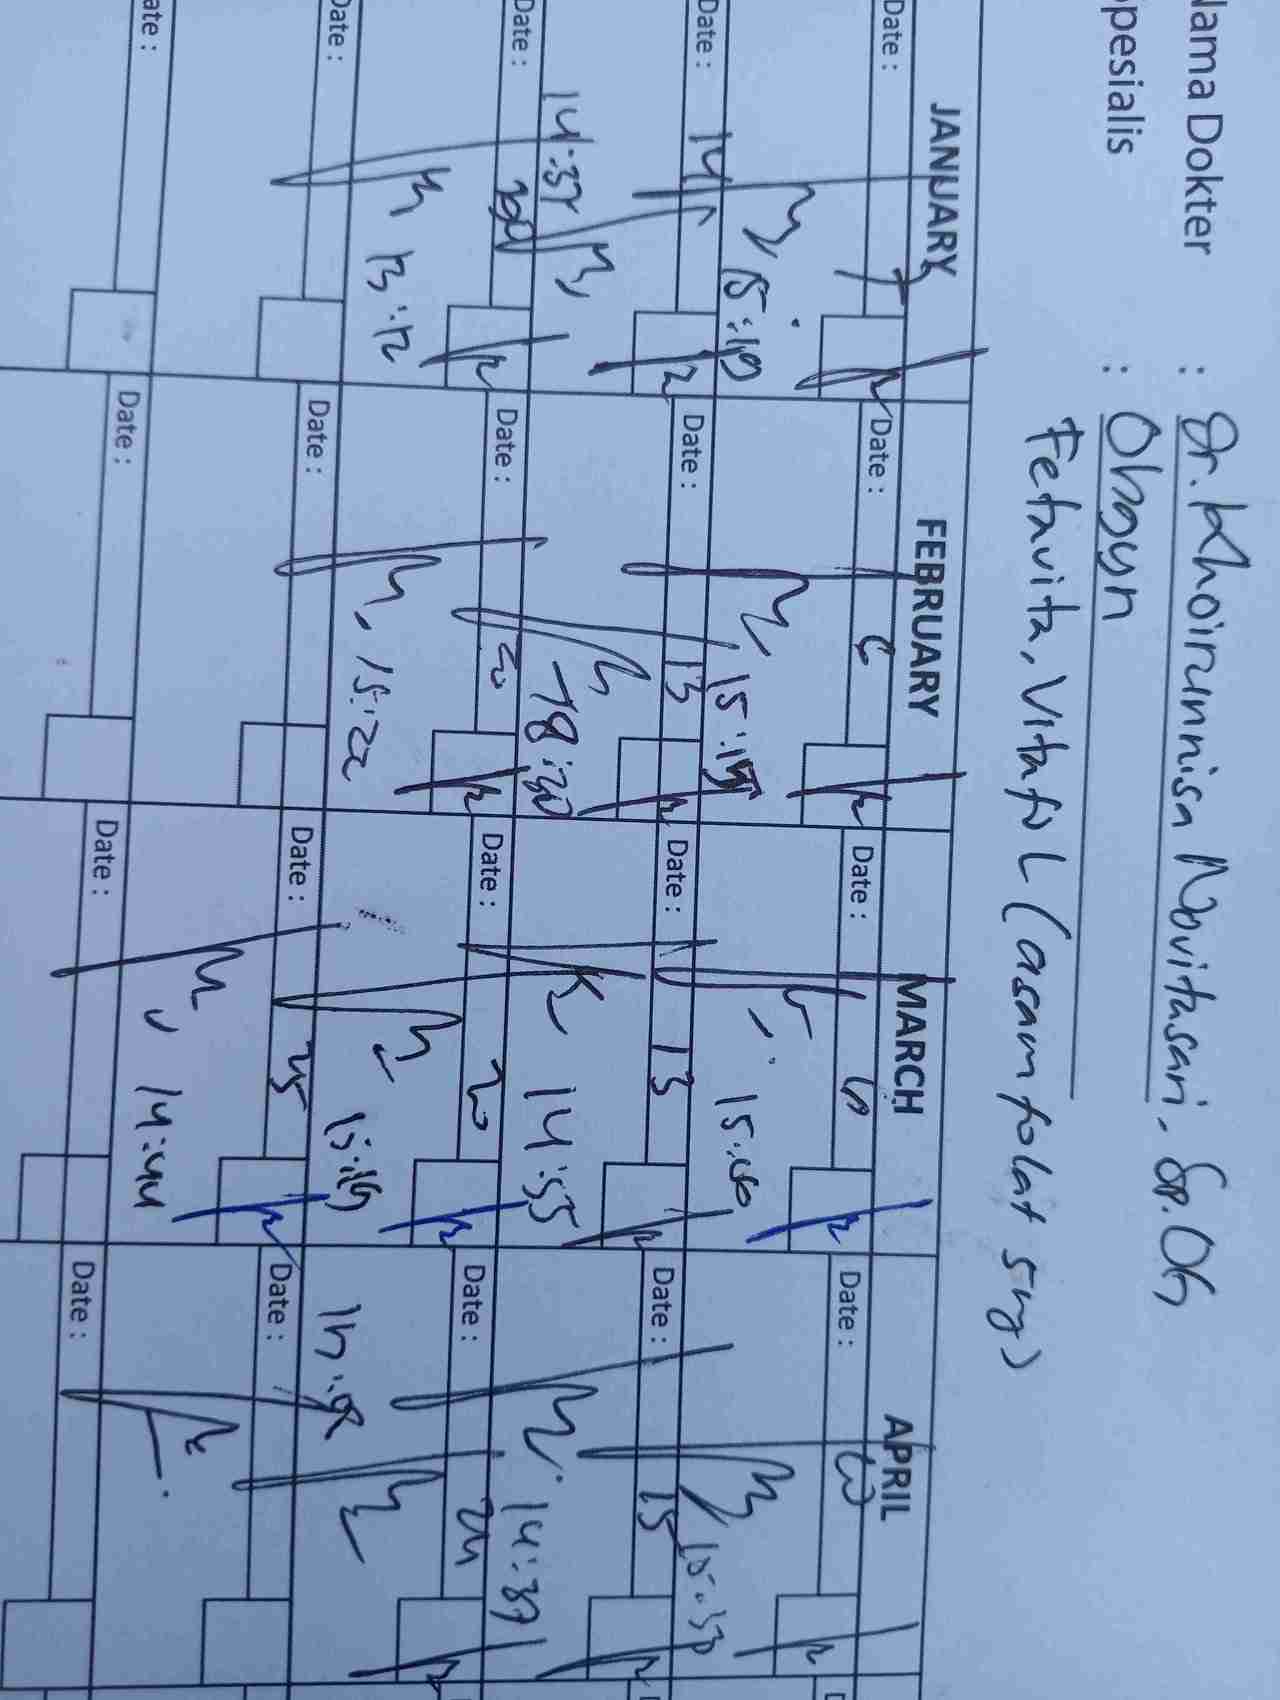 Nama Dokter : Dr. Khoirunnisa Novitasari, Sp.OG
Spesialis : Obgyn
Fetavita, Vitafol (asam folat 5mg)
JANUARY FEBRUARY MARCH APRIL
Date : 7 Date : 6 Date : 6 Date :
15:19 15:15 15:40 15:33
Date : 14 Date : 13 Date : 13 Date : 15
14:37 18:30 14:55 14:37
Date : Date : 20 Date : 20 Date : 24
13:12 15:22 15:19
Date : Date : Date : 25 Date :
14:44
Date : Date : Date : Date :